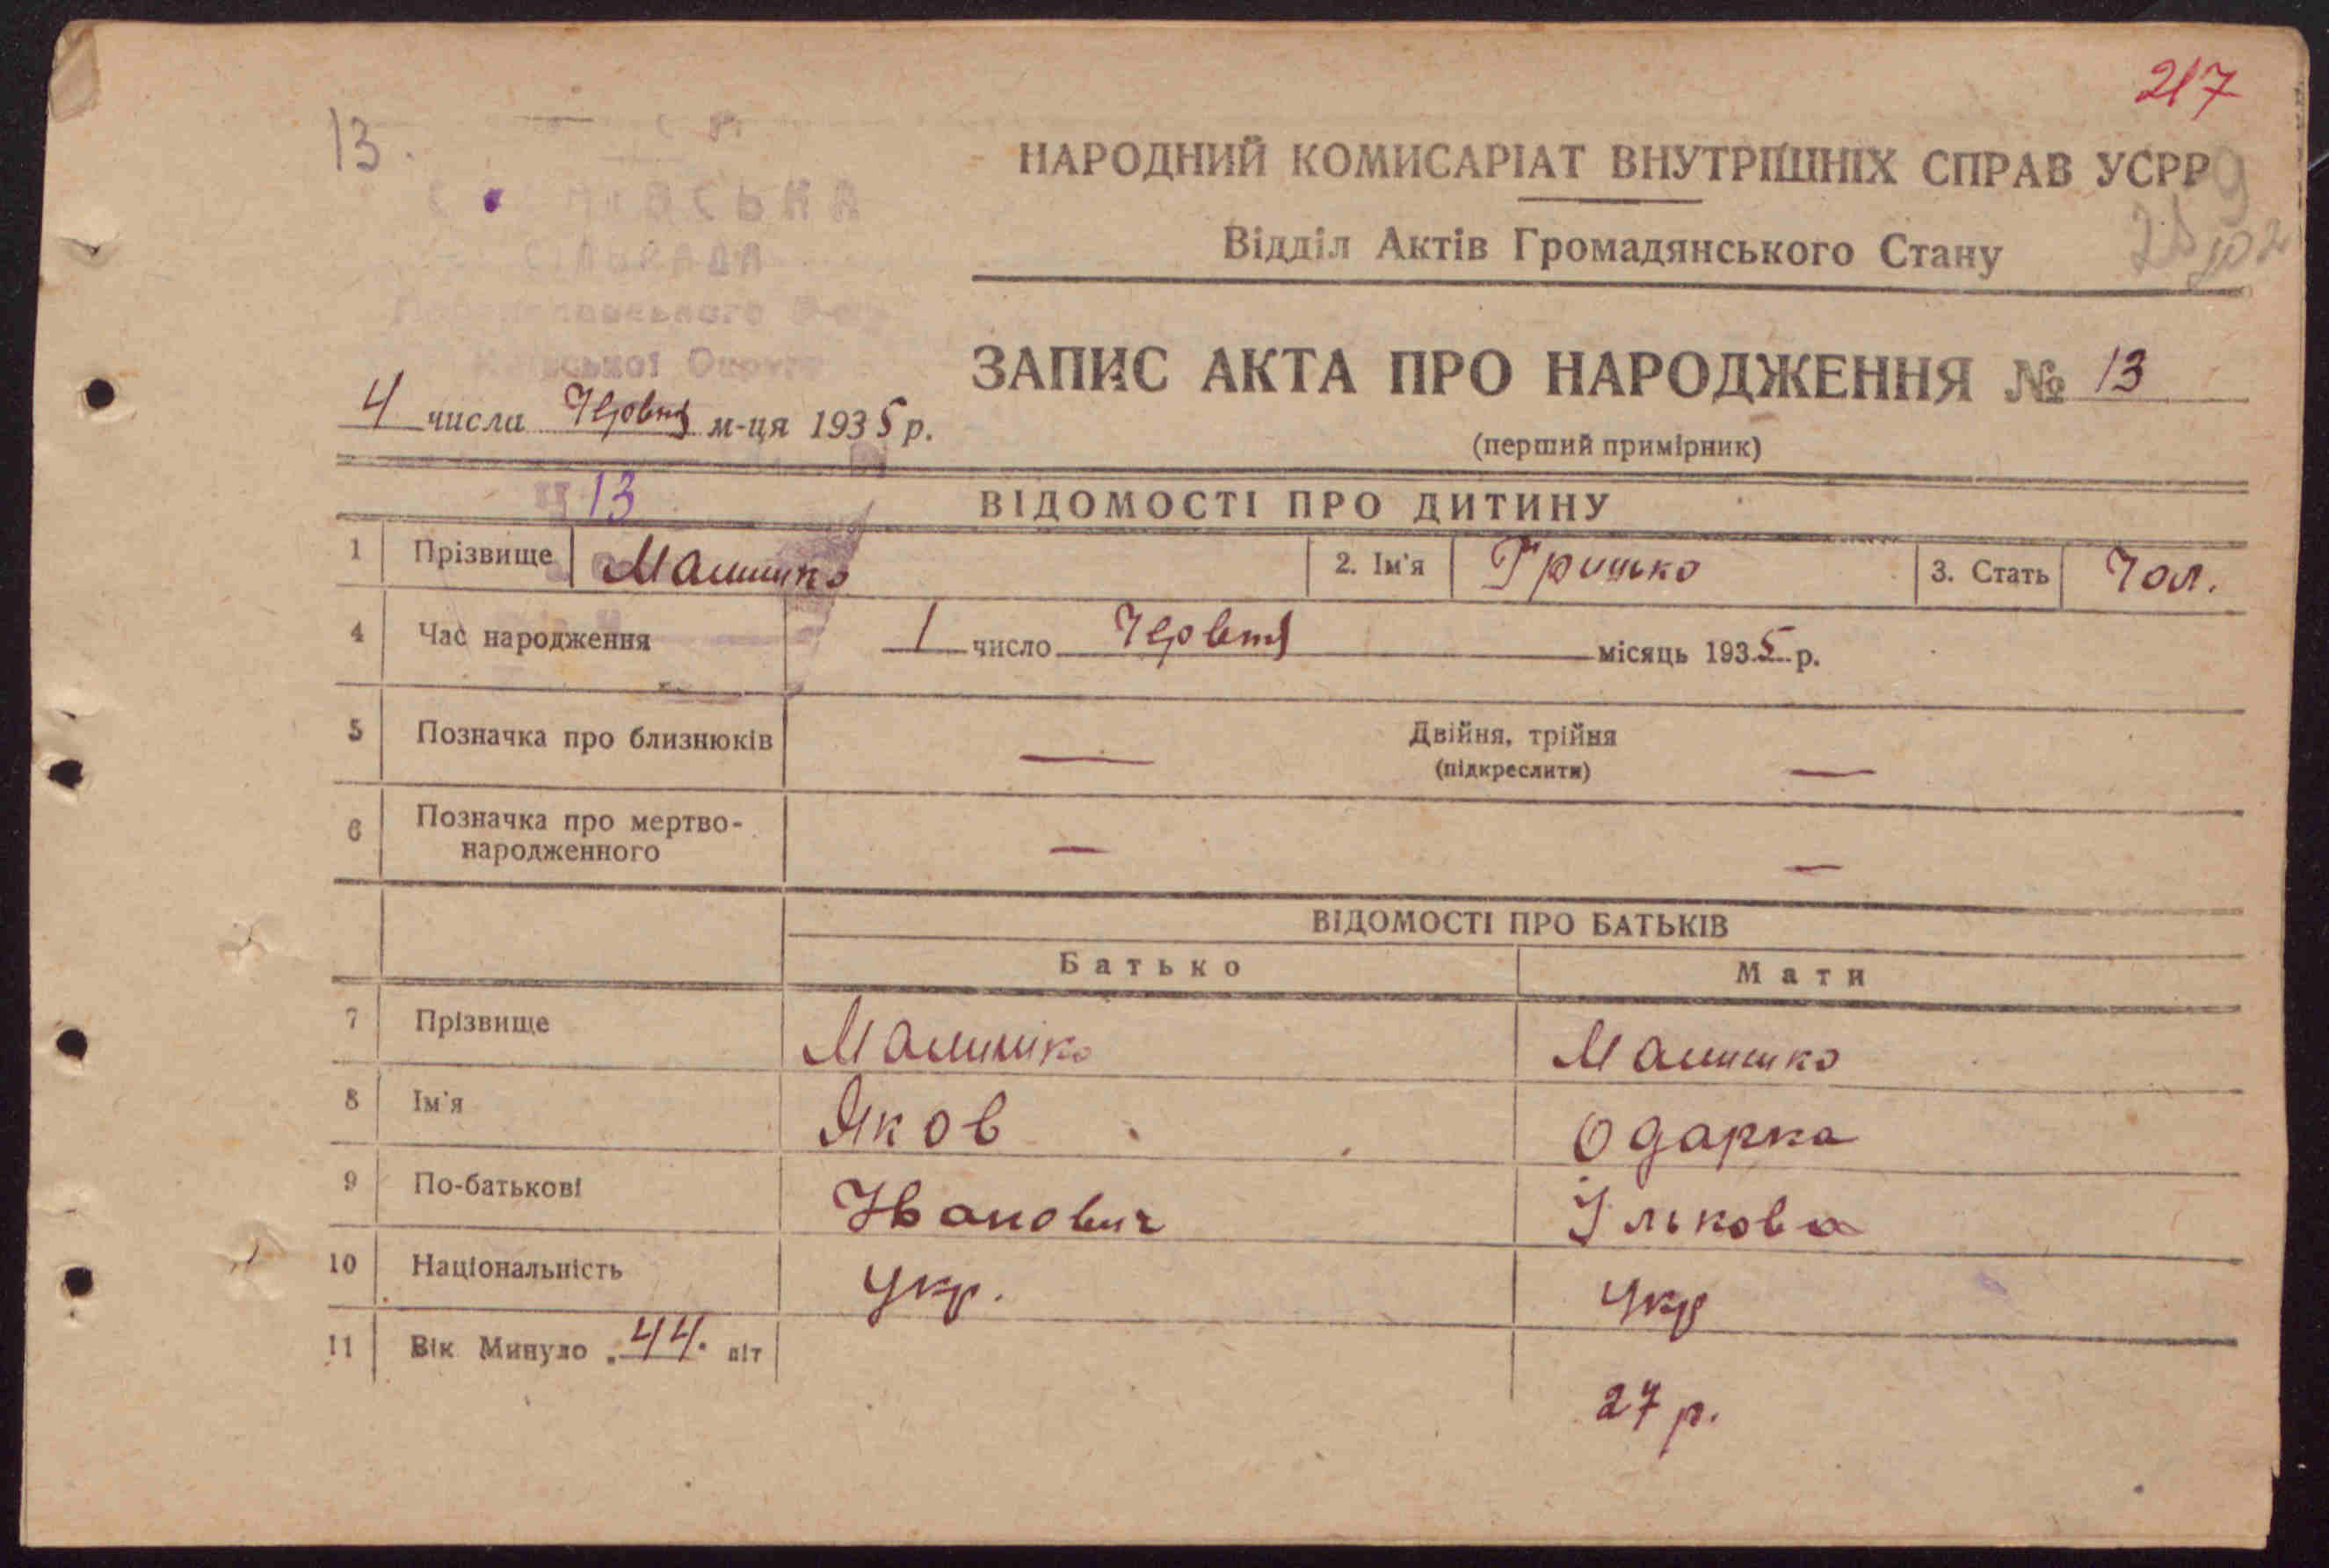 217
13.
НАРОДНИЙ КОМИСАРІАТ ВНУТРІШНІХ СПРАВ УСРР
Відділ Актів Громадянського Стану
СІЛЬРАДА
Округи
ЗАПИС АКТА ПРО НАРОДЖЕННЯ № 13
4 числа Червня м-ця 1935 р.
(перший примірник)
13
ВІДОМОСТІ ПРО ДИТИНУ
1 Прізвище Малишко 2. Ім'я Гришко 3. Стать Чол.
4 Час народження 1 число Червня місяць 1935 р.
5 Позначка про близнюків — Двійня, трійня —
(підкреслити)
6 Позначка про мертво-
народженного — —
ВІДОМОСТІ ПРО БАТЬКІВ
Батько Мати
7 Прізвище Малишко Малишко
8 Ім'я Яков Одарка
9 По-батькові Іванович Ількова
10 Національність Укр. Укр
11 Вік Минуло 44. літ
27 р.